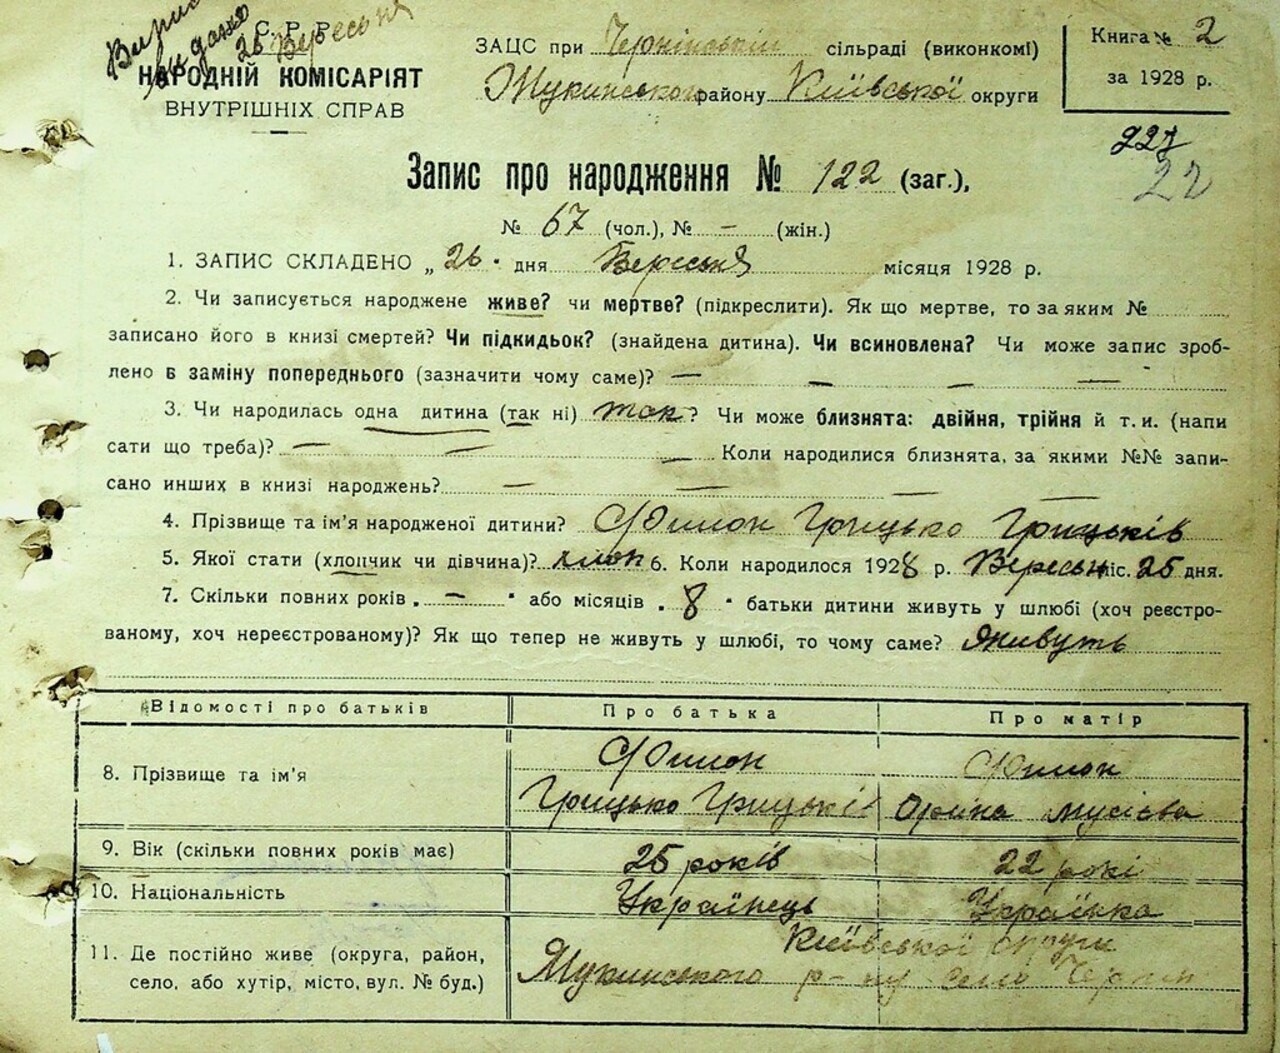 26 Вересня
С. Р. Р.
НАРОДНІЙ КОМІСАРІЯТ
ВНУТРІШНІХ СПРАВ
ЗАЦС при Чернінській сільраді (виконкомі)
району Київської округи
Книга № 2
за 1928 р.
227
22
Запис про народження № 122 (заг.),
№ 67 (чол.), № – (жін.)
1. ЗАПИС СКЛАДЕНО „ 26 " дня Вересня місяця 1928 р.
2. Чи записується народжене живе? чи мертве? (підкреслити). Як що мертве, то за яким №
записано його в книзі смертей? Чи підкидьок? (знайдена дитина). Чи всиновлена? Чи може запис зроб-
лено в заміну попереднього (зазначити чому саме)? — — — —
3. Чи народилась одна дитина (так ні) так ? Чи може близнята: двійня, трійня й т. и. (напи
сати що треба)? — — — Коли народилися близнята, за якими №№ запи-
сано инших в книзі народжень? — — — —
4. Прізвище та ім'я народженої дитини? Филон Грицько Грицьків
5. Якої стати (хлопчик чи дівчина)? хлоп 6. Коли народилося 1928 р. Вересня міс. 25 дня.
7. Скільки повних років „ — " або місяців „ 8 " батьки дитини живуть у шлюбі (хоч реєстро-
ваному, хоч нереєстрованому)? Як що тепер не живуть у шлюбі, то чому саме? Живуть
Відомості про батьків Про батька Про матір
8. Прізвище та ім'я Филон Грицько Грицькі Филон Орина Мусієва
9. Вік (скільки повних років має) 25 років 22 рокі
10. Національність Українець Українка
11. Де постійно живе (округа, район,
село, або хутір, місто, вул. № буд.)
Київської округи
р-ну село Чернин